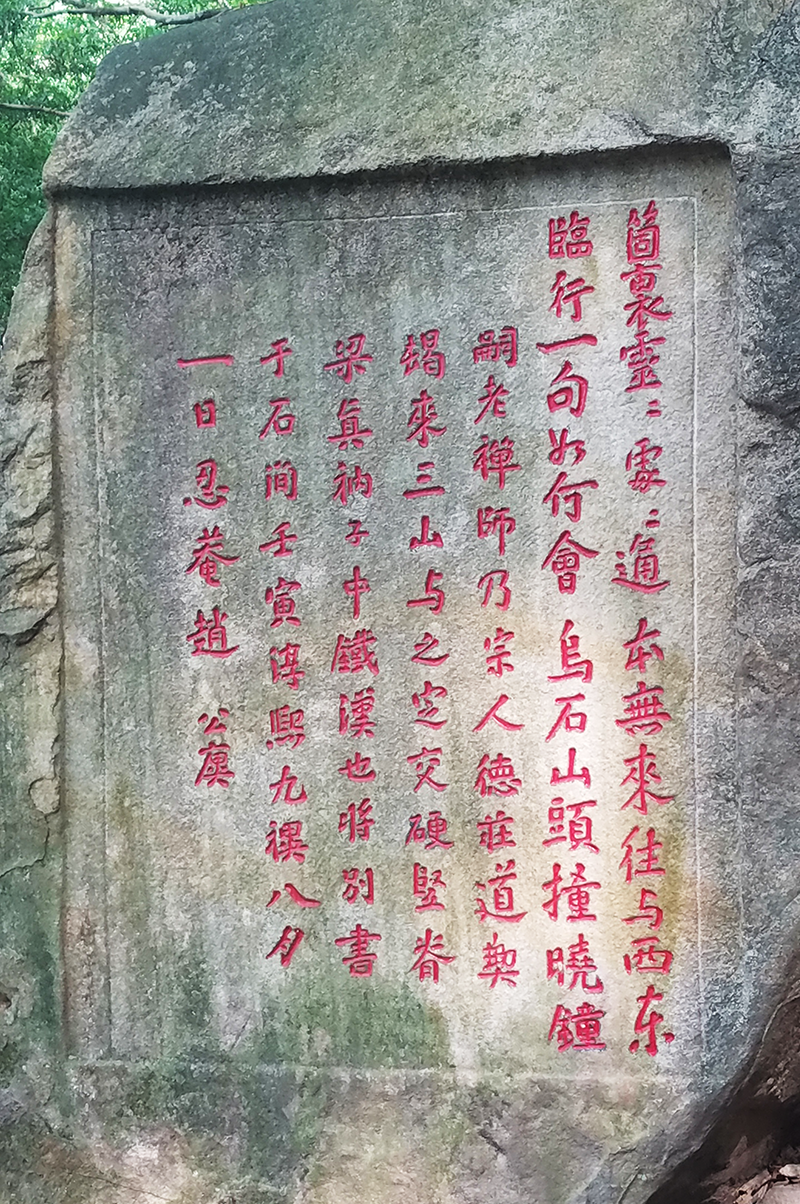 箇裏靈〻處〻通本無來往与西东
臨行一句如何會烏石山頭撞曉鐘
嗣老禅師乃宗人德莊道契
朅來三山与之定交硬竪脊
梁真衲子中鐵漢也將別書
于石间壬寅淳熙九禩八月
一日忍菴趙公廙